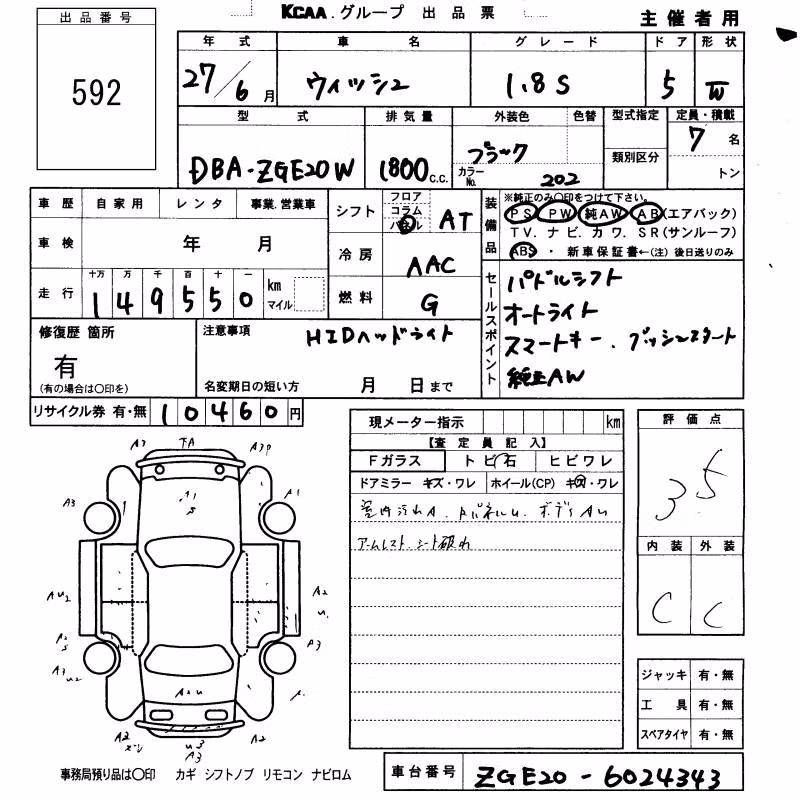 KCAA.グループ 出品票
主催者用
出品番号
592
年式 車名 グレード ドア 形状
27/6月 ウィッシュ 1.8S 5 W
型式 排気量 外装色 色替 型式指定 定員・積載
DBA-ZGE20W 1800 C.C. ブラック 7名
カラーNo. 202 類別区分 トン
車歴 自家用 レンタ 事業.営業車
車検 年 月
走行 十万 万 千 百 十 一
149550 km マイル
シフト フロア コラム パネル AT
冷房 AAC
燃料 G
装備品 ※純正のみ〇印をつけて下さい。
PS PW 純AW AB(エアバック)
TV.ナビ.カワ.SR(サンルーフ)
ABS・新車保証書←(注)後日送りのみ
セールスポイント
パドルシフト
オートライト
スマートキー.プッシュスタート
純正AW
修復歴 箇所
有
(有の場合は〇印を)
注意事項 HIDヘッドライト
名変期日の短い方 月 日まで
リサイクル券 有・無 10460円
現メーター指示 km
【査定員記入】
Fガラス トビ石 ヒビワレ
ドアミラー キズ・ワレ ホイール(CP) キズ・ワレ
室内汚れA. ボディAU
アームレスト.シート破れ
評価点
3.5
内装 外装
C C
A3 下A A3P
A1
S
A3 A1
AU2 A2
U1
A2
S P3
A3
U2
A2U
A2 U3 A2
A3
ジャッキ 有・無
工具 有・無
スペアタイヤ 有・無
事務局預り品は〇印 カギ シフトノブ リモコン ナビロム
車台番号 ZGE20-6024343